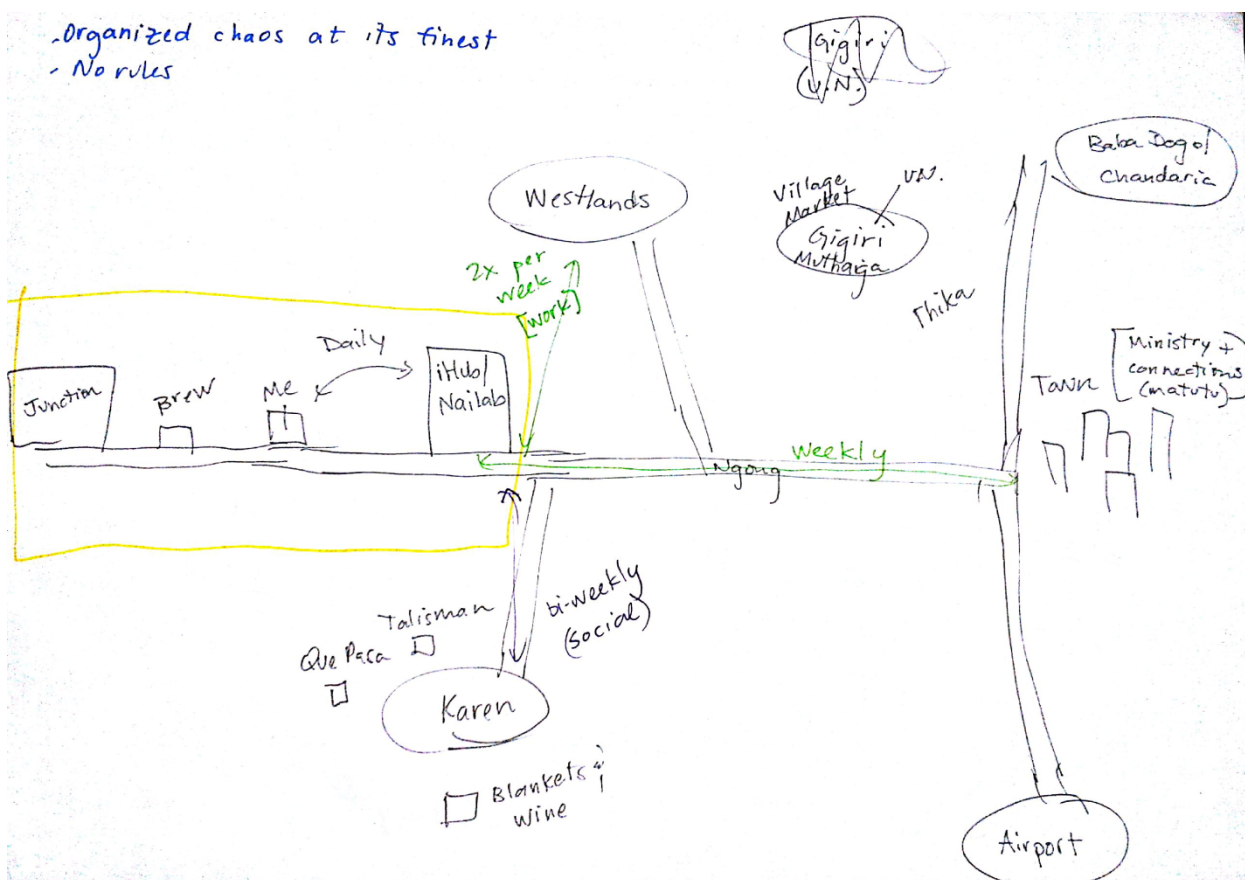 - Organized chaos at its finest
- No rules
Gigiri
(U.N.)
Baba Dogo/
Chandaria
Westlands
Village
Market
U.N.
Gigiri
Muthaiga
2x per
week
[work]
Thika
Daily
Junction
Brew
Me
iHub/
Nailab
Town
[Ministry +
connections
(matutu)]
Weekly
Ngong
bi-weekly
(social)
Talisman
Que Pasa
Karen
Blankets &
wine
Airport